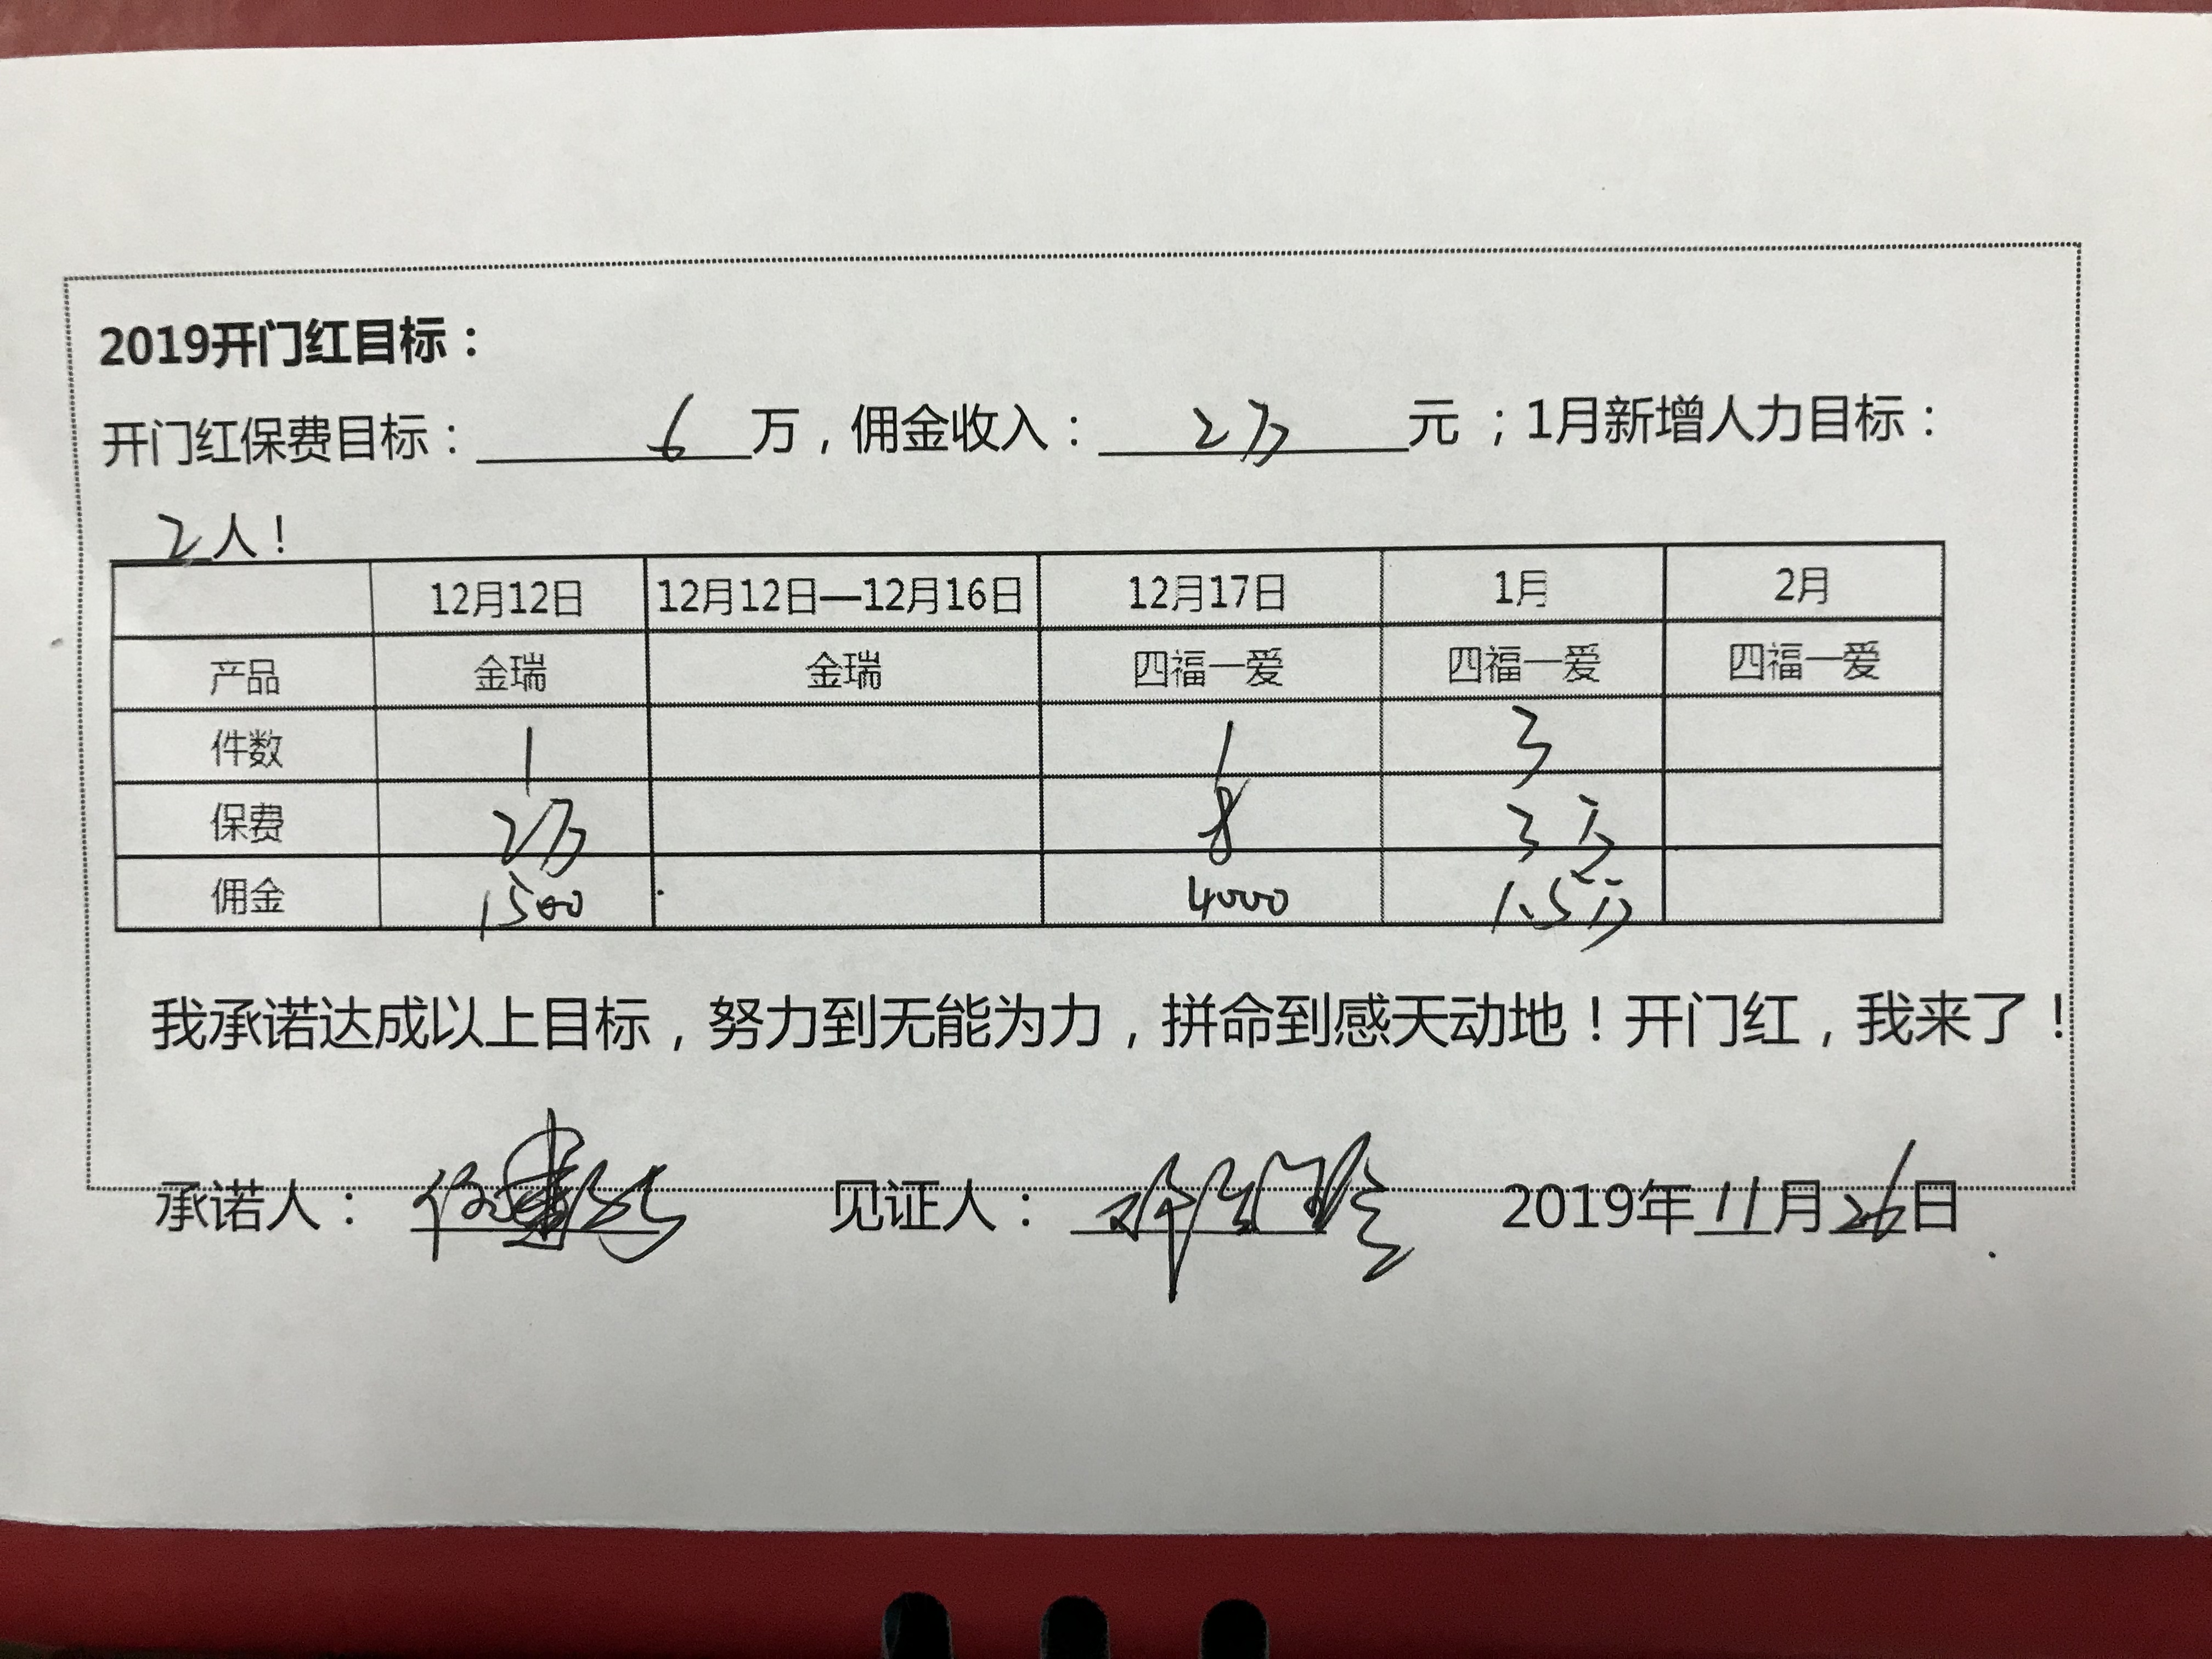 2019开门红目标：
开门红保费目标：6万，佣金收入：2万元；1月新增人力目标：
2人！
12月12日 12月12日—12月16日 12月17日 1月 2月
产品 金瑞 金瑞 四福一爱 四福一爱 四福一爱
件数 1 1 3
保费 2万 8 3万
佣金 1500 4000 1.5万
我承诺达成以上目标，努力到无能为力，拼命到感天动地！开门红，我来了！
承诺人： 见证人： 2019年11月26日